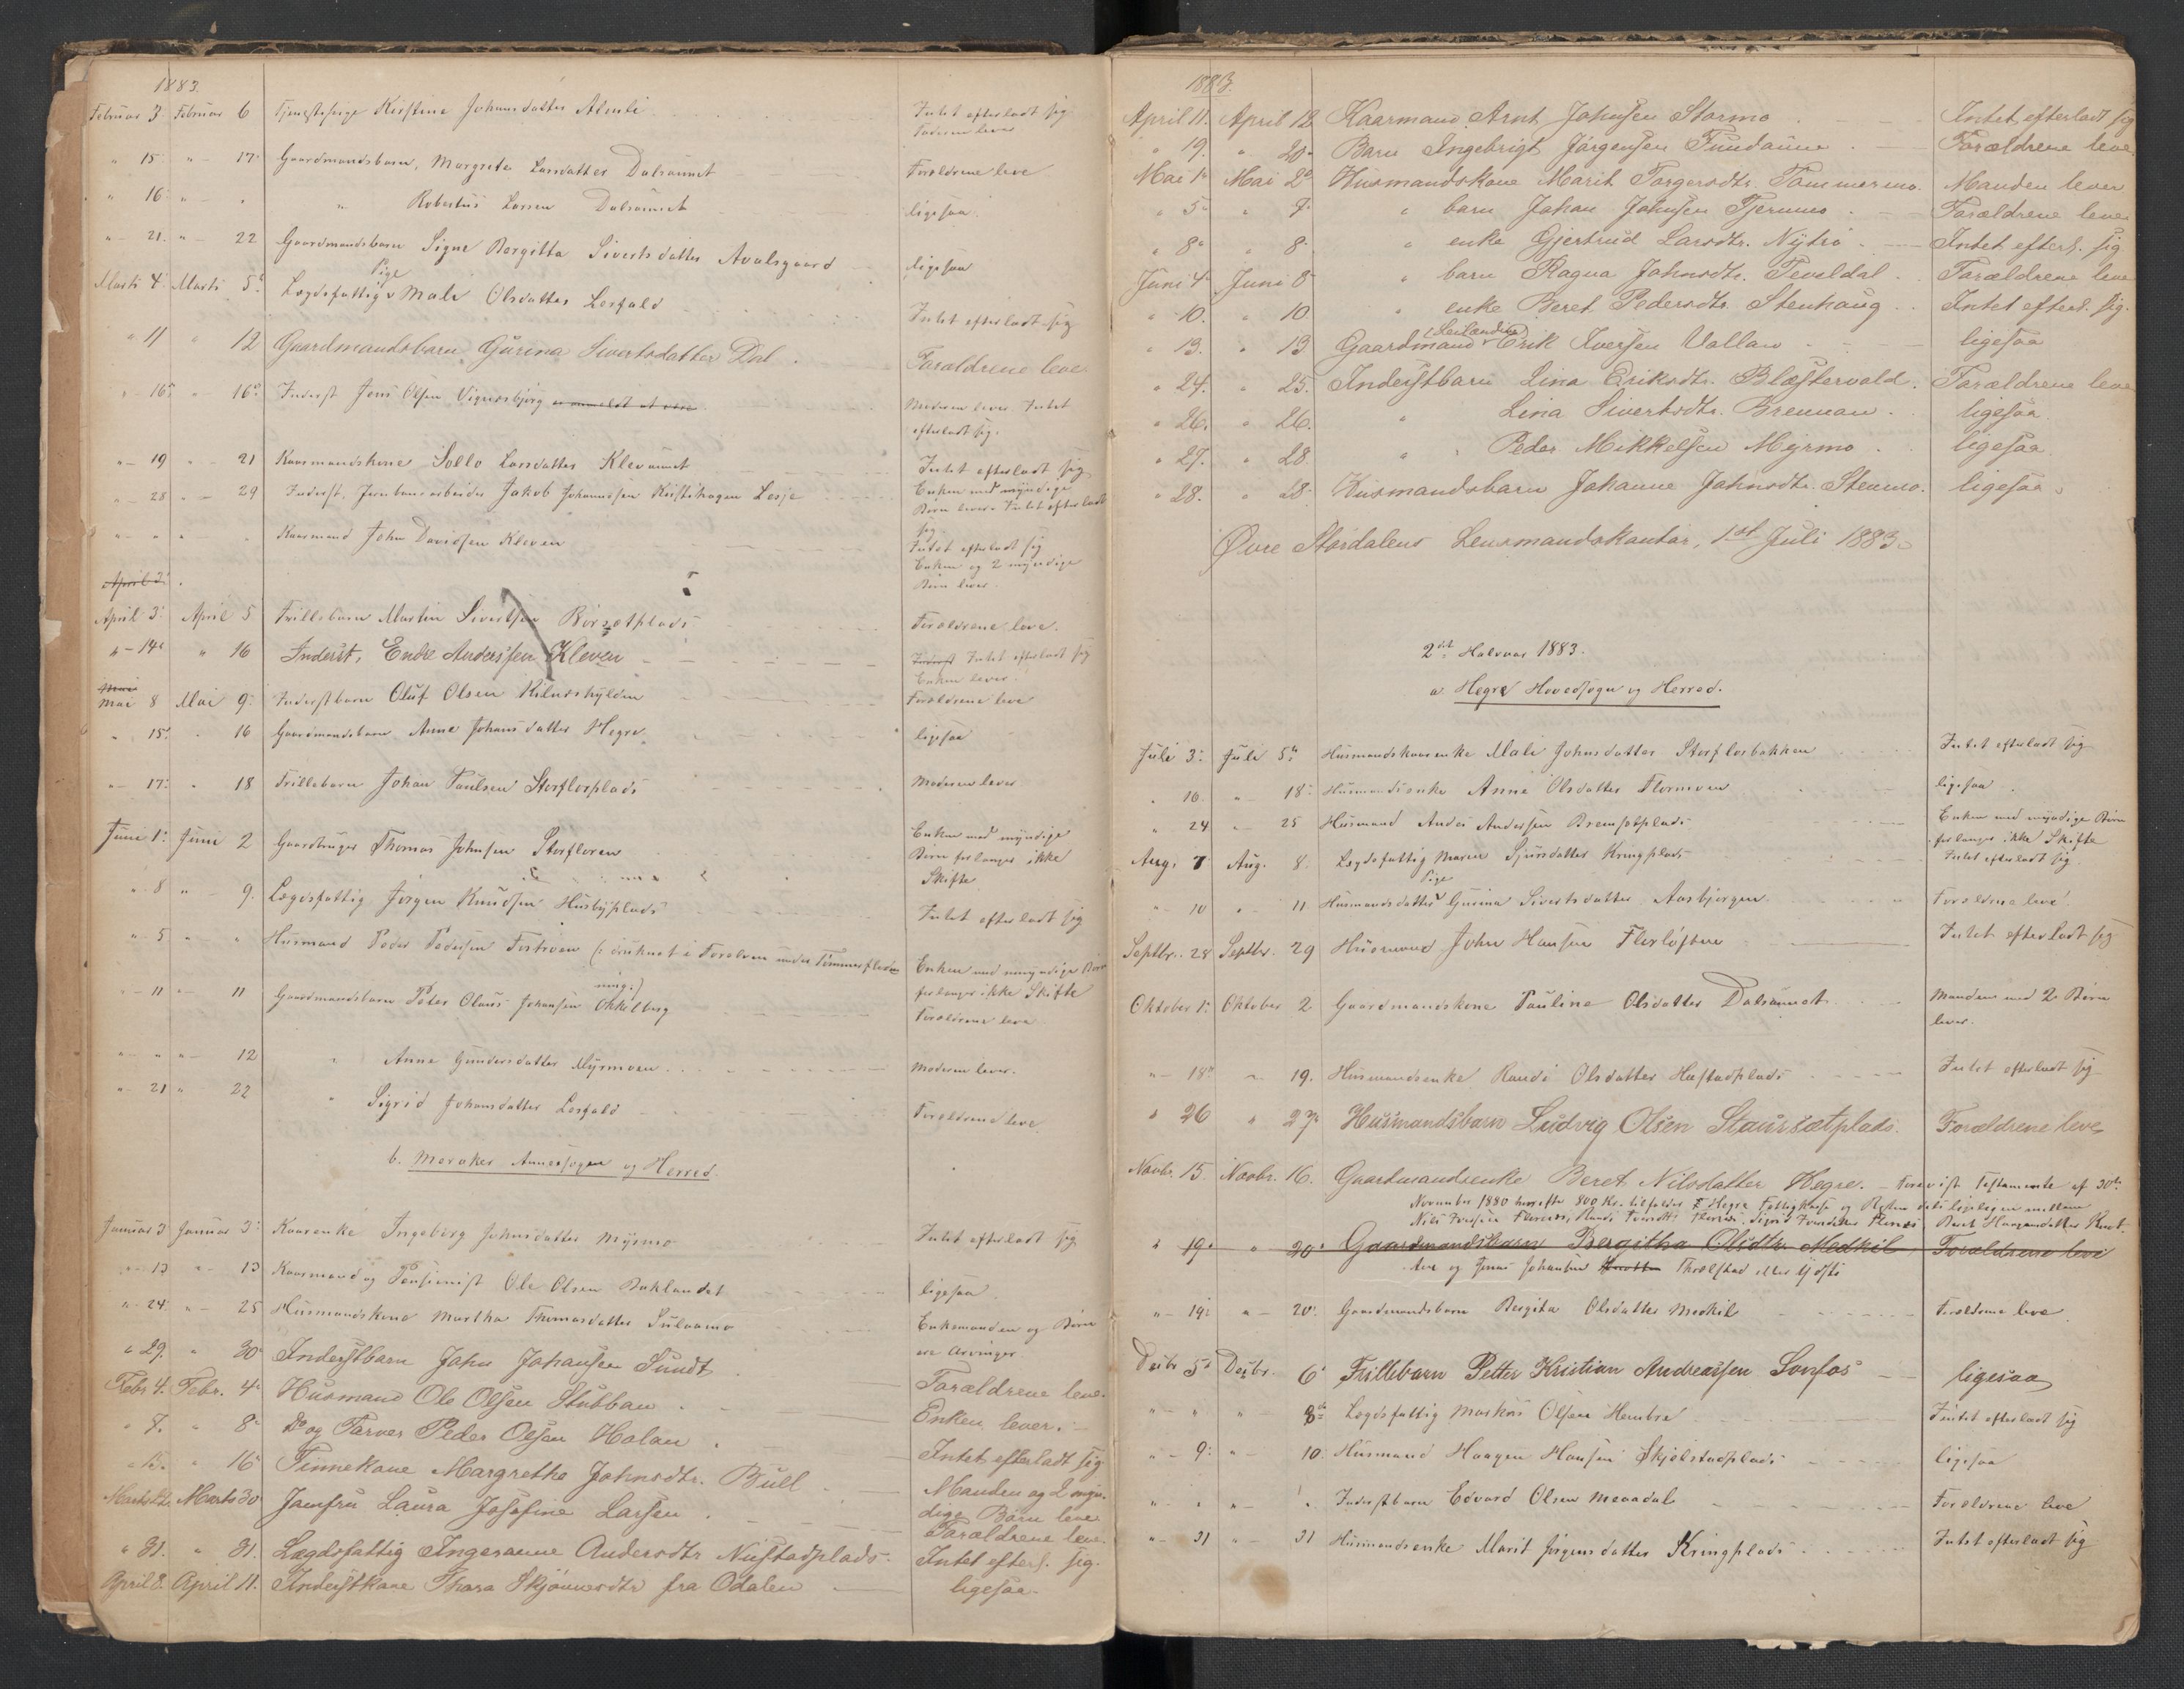 1883.
Februar 3 Februar 6 Tjenestepige Kirstine Johansdatter Almli Intet efterladt sig
Faderen lever
" 15 " 17 Gaardmandsbarn, Margrete Larsdatter Dalsaunet Forældrene leve
" 16 " " " Robertus Larsen Dalsaunet ligesaa
" 21. " 22 Gaardmandsbarn Signe Bergitta Sivertsdatter Avelsgaard ligesaa
Pige
Marts 4 Marts 5 Lægdsfattig Mali Olsdatter Lerfald Intet efterladt sig
" 11 " 12 Gaardmandsbarn Gurina Sivertsdatter Dal Forældrene leve
" 16 " 16 Inderst Jens Olsen Vigensbjerg er anmeldt at være Moderen lever Intet
efterladt sig.
" 19 " 21 Kaarmandskone Larsdatter Klevaunet Intet efterladt sig
" 28 " 29 Inderst, Jernbanearbeider Jakob Johannesen Kristihagen Lesje Enken med myndige
Børn lever. Intet efterladt
sig
" " " " Kaarmand John Davidsen Kleven Intet efterladt sig
Enken og 2 myndige
Børn lever.
April 3
April 3 April 5 Frillebarn Martin Sivertsen Børsetplads Forældrene leve.
" 14 " 16 Inderst, Endre Anderssen Kleven Intet efterladt sig
Enken lever.
Mai 8 Mai 9 Inderstbarn Oluf Olsen Kilneshylden Forældrene leve
" 15 " 16 Gaardmandsbarn Anne Johansdatter Hegre ligesaa
" 17 " 18 Frillebarn Johan Paulsen Storflorplads Moderen lever
Juni 1 Juni 2 Gaardbruger Thomas Johnsen Storfloren Enken med myndige
Børn forlanger ikke
Skifte
" 8 " 9. Lægdsfattig Jørgen Knudsen Husbyplads Intet efterladt sig
" 5 " " Husmand Peder Pedersen Fortroen (: druknet i Foraelven under Tømmerfløt-
ning:) Enken med umyndige Børn
forlanger ikke Skifte
" 11 " 11 Gaardmandsbarn Peter Olaus Johansen Okkilberg Forældrene leve
" " " 12 " Anne Gundersdatter Myrmoen Moderen lever.
" 21 " 22 " Sigrid Johansdatter Lerfald Forældrene leve
b. Meraker Annexsogn og Herred.
Januar 3 Januar 3 Kaarenke Ingeborg Johnsdatter Myrmo Intet efterladt sig
" 13 " 13 Kaarmand og Pensionist Ole Olsen Baklandet ligesaa
" 24 " 25 Husmandskone Martha Thomasdatter Sulaamo Enkemanden og Børn
ere Arvinger
" 29. " 30 Inderstbarn John Johansen Sundt Forældrene leve.
Febr 4. Febr. 4 Husmand Ole Olsen Stubban Enken lever.
" 7. " 8 Do og Farver Peder Olsen Holan Intet efterladt sig
" 15. " 16 Finnekone Margrethe Johnsdtr. Bull Manden og 2 myn-
dige Børn leve
Marts Marts 30 Jomfru Laura Josefine Larsen Forældrene leve.
" 31. " 31. Lægdsfattig Ingeranne Andersdtr Nustadplads Intet efterl. sig.
April 8. April 11. Inderstkone Thora Skjønnesdtr fra Odalen ligesaa.
1883.
April 11. April 12 Kaarmand Arnt Johnsen Stormo Intet efterladt sig
" 19. " 20 Barn Ingebrigt Jørgensen Fundaune Forældrene leve.
Mai 1 Mai 2 Husmandskone Marit Torgersdtr. Tømmermo. Manden lever
" 5 " 7 " barn Johan Johnsen Tjernmo Forældrene leve
" 8 " 8 " enke Gjertrud Larsdtr. Nytrø Intet efterl. sig
Juni 4 Juni 8 " barn Ragna Johnsdtr. Teveldal Forældrene leve
" 10. " 10 " enke Beret Pedersdtr. Stenhaug Intet efterl. sig.
(Leilænding)
" 13. " 13 Gaardmand Erik Iversen Vollan ligesaa
" 24. " 25. Inderstbarn Lina Eriksdtr. Blæstervold. Forældrene leve
" 26. " 26. " Lina Sivertsdtr. Brennan. ligesaa
" 27. " 28. " Peder Mikkelsen Myrmo ligesaa
" 28. " 28 Husmandsbarn Johanne Johnsdtr. Stenmo. ligesaa
Øvre Størdalens Lensmandskontor, 1st Juli 1883.
2det Halvaar 1883.
a. Hegre Hovedsogn og Herred.
Juli 3 Juli 5 Husmandskaarenke Mali Johnsdatter Storflorbakken Intet efterladt sig
" 16 " 18 Husmandsenke Anne Olsdatter Flormoen ligesaa
" 24 " 25 Husmand Anders Andersen Bremsetplads Enken med myndige Børn
forlanger ikke Skifte
Aug. 7 Aug. 8. Lægdsfattig Maren Sjursdatter Kringplads Intet efterladt sig.
Pige
" 10 " 11 Husmandsdatter Gurina Sivertsdatter Aasbjørgen Forældrene leve.
Septbr. 28 Septbr. 29 Husmand John Hansen Florløften Intet efterladt sig
Oktober 1. Oktober 2 Gaardmandskone Pauline Olsdatter Dalsaunet Manden med 2 Børn
lever.
" 18 " 19. Husmandsenke Randi Olsdatter Hastadplads Intet efterladt sig
" 26 " 27 Husmandsbarn Ludvig Olsen Staursætplads. Forældrene leve
Novbr. 15. Novbr. 16. Gaardmandsenke Beret Nilsdatter Hegre. Testamente af 30te
November 1880 800 Kr. tilfalder Hegre Fattigkasse og Resten mellem
" 19 " 20 Gaardmandsbarn Bergitha Olsdtr. Medkil Forældrene leve
og Jonas Johansen
" 19 " 20 Gaardmandsbarn Bergita Olsdatter Medkil Forældrene leve
Decbr 5 Decbr. 6 Frillebarn Petter Kristian Andreassen Sonfos ligesaa
" " " 8de Lægdsfattig Markus Olsen Hembre Intet efterladt sig
" 9 " 10. Husmand Haagen Hansen Skjelstadplads ligesaa
" " " " Inderstbarn Edvard Olsen Meaadal Forældrene leve
" 31 " 31 Husmandsenke Marit Jørgensdatter Kringplads Intet efterladt sig